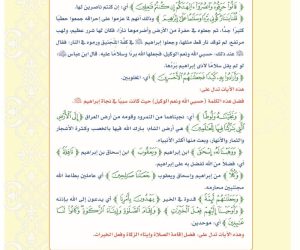 ﴿ قَالُوا حَرِّقُوهُ وَانصُرُوا آلِهَتَكُمْ إِن كُنتُمْ فَاعِلِينَ ﴾ أي: إن كنتم ناصرين لها.
﴿ قُلْنَا يَا نَارُ كُونِي بَرْدًا وَسَلَامًا عَلَىٰ إِبْرَاهِيمَ ﴾ وذلك أنهم لما عزموا على إحراقه جمعوا حطبًا
كثيرًا جدًّا، ثم جعلوه في حفرة من الأرض وأضرموها نارًا، فكان لها شرر عظيم، ولهب
مرتفع، لم توقد نار قط مثلها، وجعلوا إبراهيم في كفة المنجنيق ورموه في النار، فقال
عند ذلك: حسبي الله ونعم الوكيل، فجعلها الله بردًا وسلامًا عليه. قال ابن عباس
لو لم يقل سلامًا لآذى إبراهيم بردها.
﴿ وَأَرَادُوا بِهِ كَيْدًا فَجَعَلْنَاهُمُ الْأَخْسَرِينَ ﴾ أي: المغلوبين.
هذه الآيات تدل على:
فضل هذه الكلمة (حسبي الله ونعم الوكيل) حيث كانت سببًا في نجاة إبراهيم
﴿ وَنَجَّيْنَاهُ وَلُوطًا ﴾ أي: نجيناهما من النمرود وقومه من أرض العراق ﴿ إِلَى الْأَرْضِ
الَّتِي بَارَكْنَا فِيهَا لِلْعَالَمِينَ ﴾ هي أرض الشام، بارك الله فيها بالخصب وكثرة الأشجار
والثمار والأنهار، وبعث منها أكثر الأنبياء.
﴿ وَوَهَبْنَا لَهُ إِسْحَاقَ ﴾ ابن إبراهيم ﴿ وَيَعْقُوبَ ﴾ ابن إسحاق بن إبراهيم ﴿ نَافِلَةً ﴾
أي: فضلًا من الله تفضل به على إبراهيم.
﴿ وَكُلًّا ﴾ من إبراهيم وإسحاق ويعقوب ﴿ جَعَلْنَا صَالِحِينَ ﴾ أي: عاملين بطاعة الله
مجتنبين محارمه.
﴿ وَجَعَلْنَاهُمْ أَئِمَّةً ﴾ قدوة في الخير ﴿ يَهْدُونَ بِأَمْرِنَا ﴾ أي يدعون إلى الله بإذنه
﴿ وَأَوْحَيْنَا إِلَيْهِمْ فِعْلَ الْخَيْرَاتِ ﴾ ﴿ وَإِقَامَ الصَّلَاةِ وَإِيتَاءَ الزَّكَاةِ وَكَانُوا لَنَا
عَابِدِينَ ﴾ أي: موحدين.
هذه الآيات تدل على: فضل إقامة الصلاة وإيتاء الزكاة وفعل الخيرات.